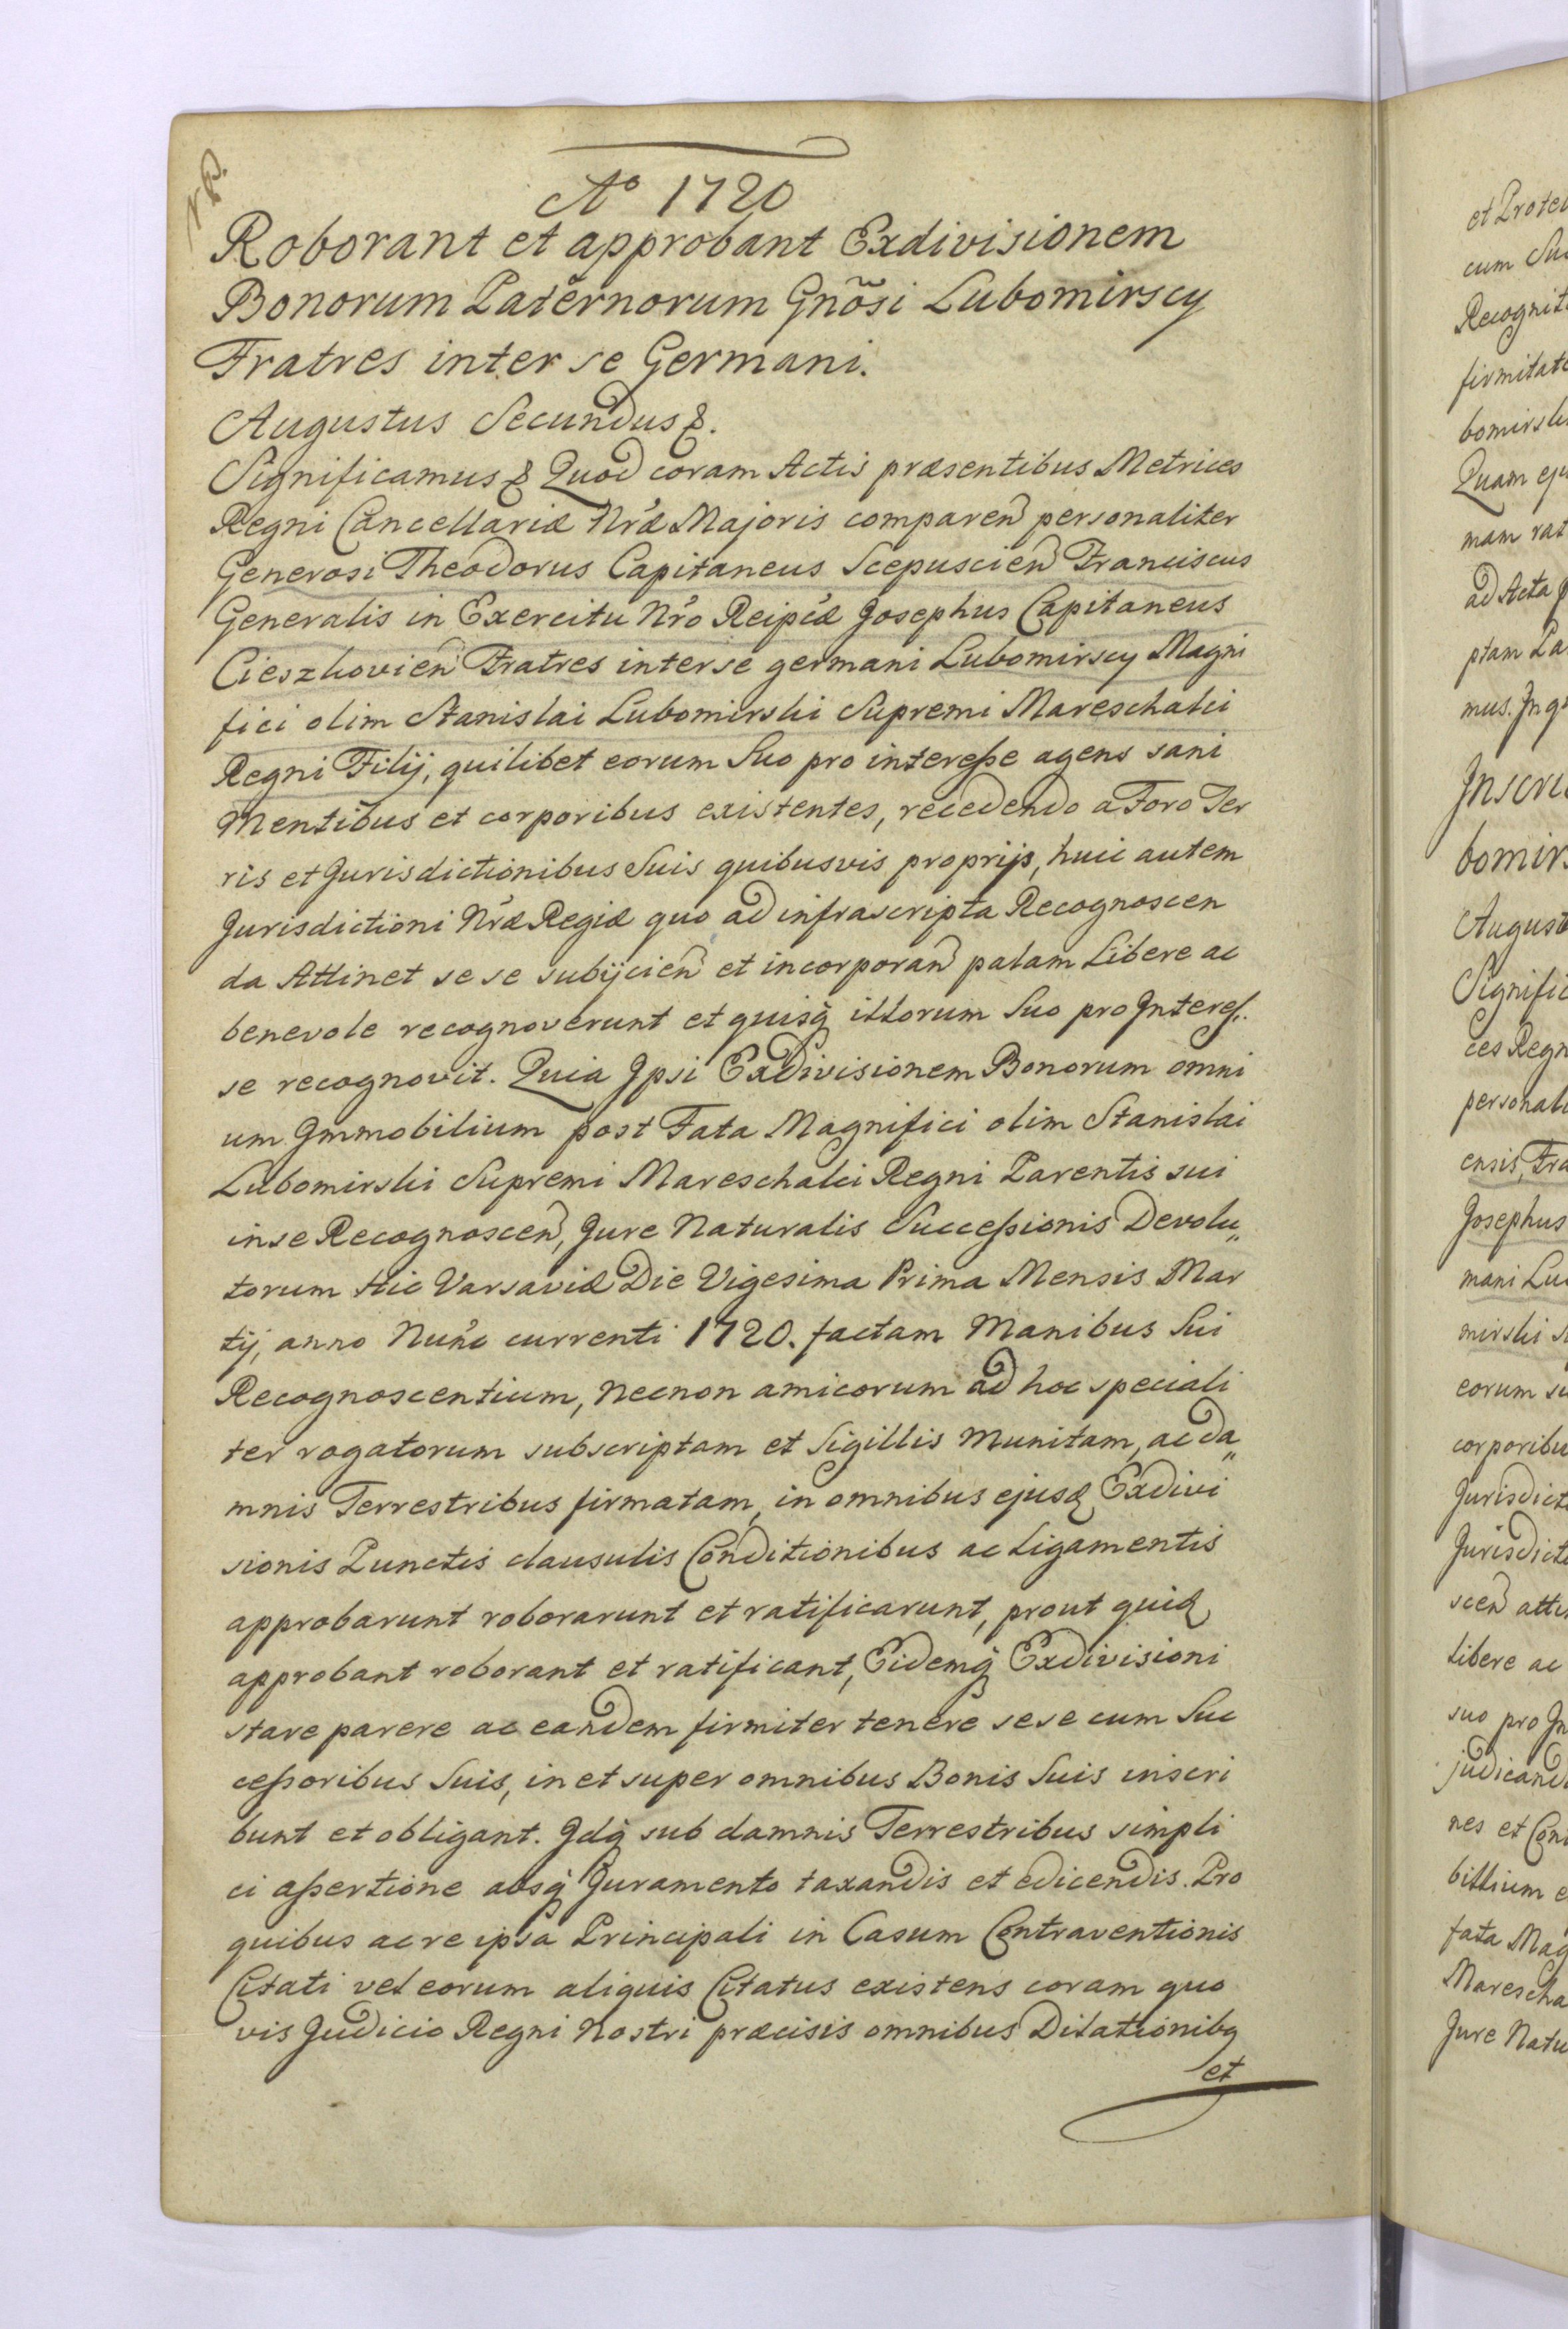 NB.
Aº 1720
Roborant et approbant Exdivisionem
Bonorum Paternorum Gnõsi Lubomirscy
Fratres inter se Germani.
Augustus Secundus &.
Significamus & Quod coram Actis præsentibus Metrices
Regni Cancellariæ Nræ Majoris comparen personaliter
Generosi Theodorus Capitaneus Scepuscien Franciscus
Generalis in Exercitu Nro Reipcæ Josephus Capitaneus
Cieszkovien Fratres inter se germani Lubomirscy Magni
fici olim Stanislai Lubomirski Supremi Mareschalci
Regni Filij, quilibet eorum Suo pro interesse agens sani
Mentibus et corporibus existentes, recedendo a Foro Ter
ris et Jurisdictionibus Suis quibusvis proprijs, huic autem
Jurisdictioni Nræ Regiæ quo ad infrascripta Recognoscen
da Attinet se se subijcien et incorporan palam Libere ac
benevole recognoverunt et quisq illorum Suo pro Interes.
se recognovit. Quia Ipsi Exdivisionem Bonorum omni
um Immobilium post Fata Magnifici olim Stanislai
Lubomirski Supremi Mareschalci Regni Parentis sui
in se Recognoscen, Jure Naturalis Successionis Devolu„
torum Hic Varsaviæ Die Vigesima Prima Mensis Mar
tij, anno Nunc currenti 1720. factam Manibus Sui
Recognoscentium, necnon amicorum ad hoc speciali
ter rogatorum subscriptam et Sigillis Munitam, ac da„
mnis Terrestribus firmatam, in omnibus ejusd Exdivi
sionis Punctis clausulis Conditionibus ac Ligamentis
approbarunt roborarunt et ratificarunt, prout quid
approbant roborant et ratificant, Eidemq Exdivisioni
stare parere ac eandem firmiter tenere sese cum Suc
cessoribus Suis, in et super omnibus Bonis Suis inscri
bunt et obligant. Idq sub damnis Terrestribus simpli
ci assertione absq Juramento taxandis et edicendis. Pro
quibus ac re ipsa Principali in Casum Contraventionis
Citati vel eorum aliquis Citatus existens coram quo
vis Judicio Regni Nostri præcisis omnibus Dilationibq
et
et Prote
cum Su
Recognit
firmitate
bomirsk
Quam ej
mam rat
ad Acta
ptam La
mus. In q
Inscri
bomirs
August
Signific
ces Regn
personali
ensis, Fra
Josephus
mani Lu
mirski
eorum su
corporibu
Jurisdict
Jurisdict
scen atti
libere ac
suo pro In
judicand
nes et Con
bilium e
fata Mag
Marescha
Jure Natu